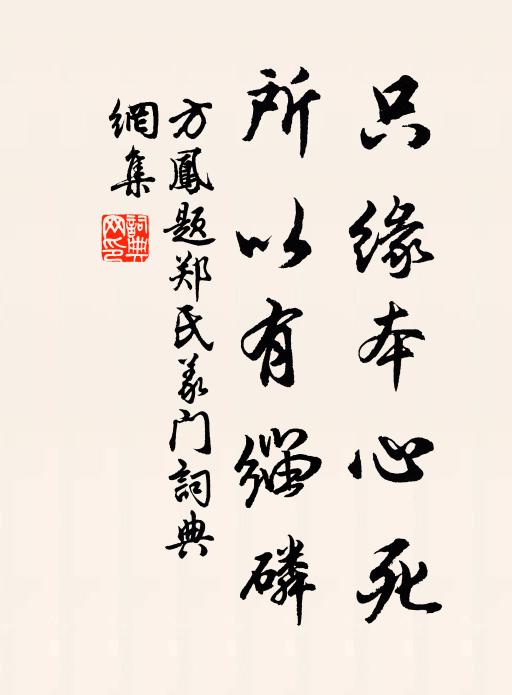 只缘本心死
所以有缁磷
方鳳题郑氏义门詞典
網集
詞典網印